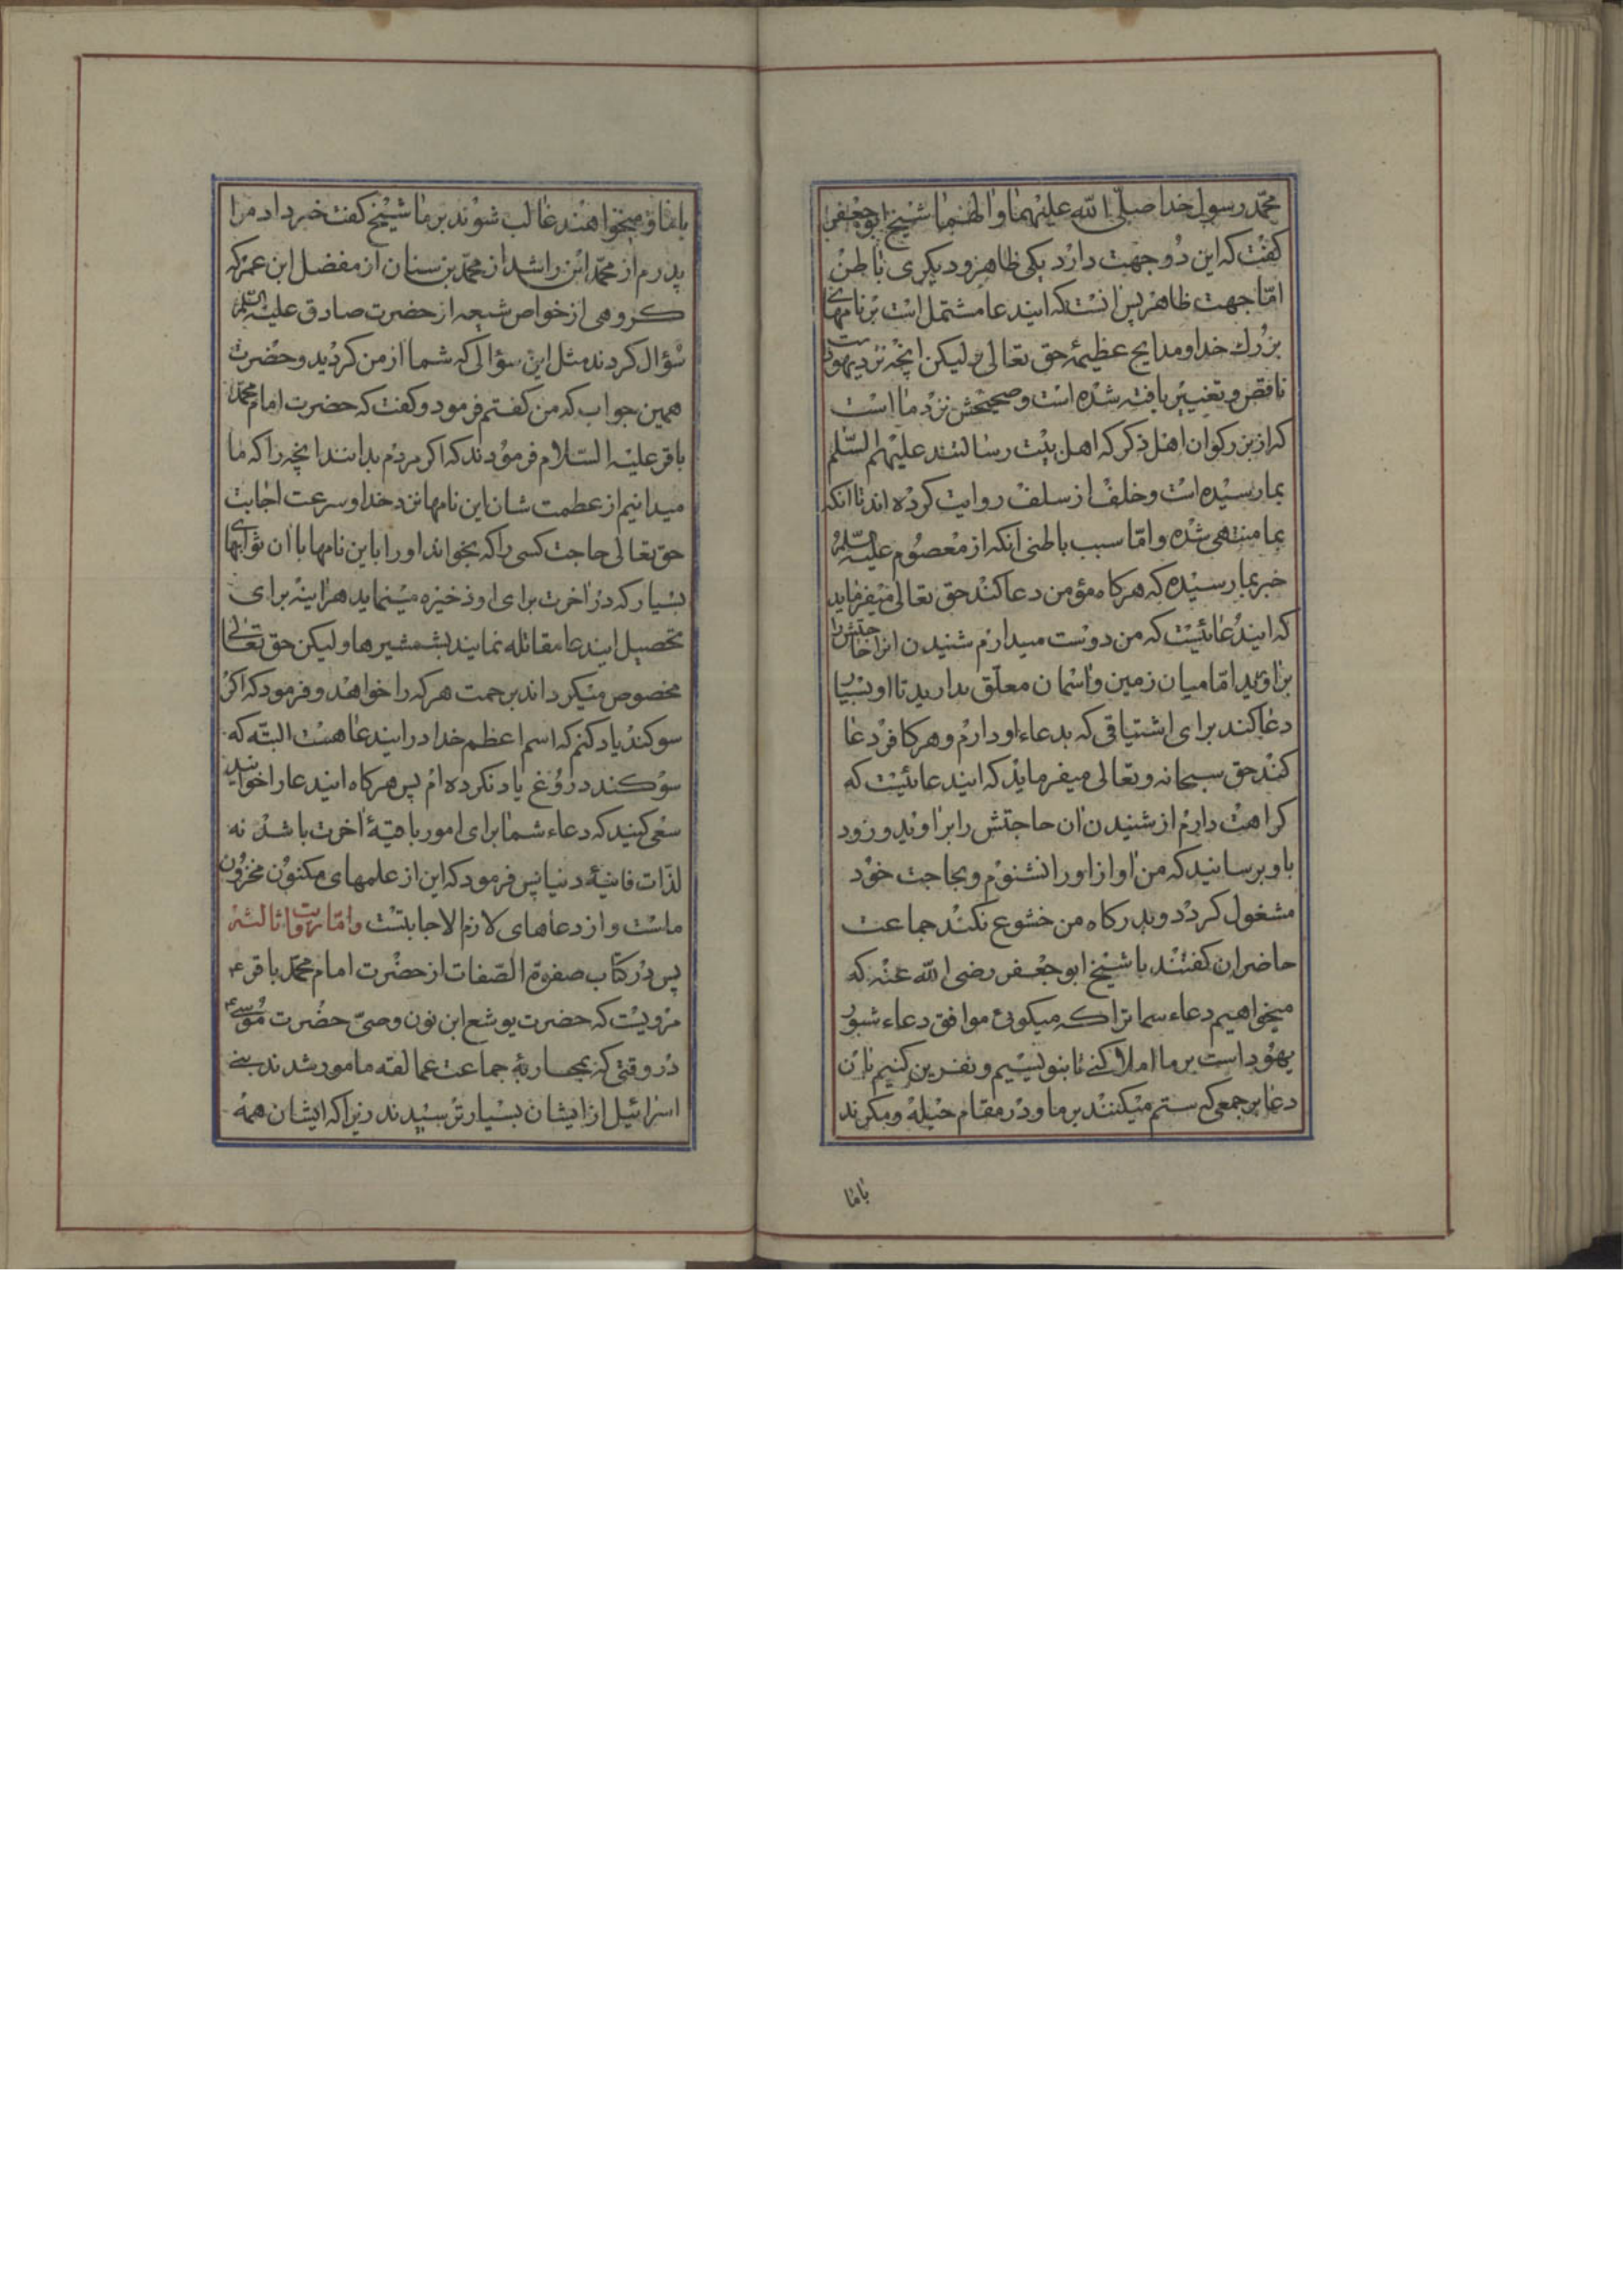 محمّد رسول خدا صلّی الله علیهما و الهما شیخ ابو جعفر
کفت که این دو جهت دارد یکی ظاهر و دیکری باطن
امّا جهت ظاهر پس انست که ایندعا مشتمل است بر نامهای
بزرك خدا و مدایح عظیمهٔ حق تعالی و لیکن انچه نزد یهود است
ناقص و تغییر یافته شده است و صحیحش نزد ما است
که از بزرکوان اهل ذکر که اهل بیت رسالتند علیهم السّلم
بما رسیده است و خلف از سلف روایت کرده اند تا انکه
بما منتهی شده و امّا سبب باطنی انکه از معصوم علیه السّلم
خبر بما رسیده که هرکاه مؤمن دعا کند حق تعالی میفرماید
که ایندعائیست که من دوست میدارم شنیدن انرا حاجتش را
براورید امّا میان زمین و اسمان معلّق بدارید تا او بسیار
دعا کند برای اشتیاقی که بدعاء او دارم و هر کافر دعا
کند حق سبحانه و تعالی میفرماید که ایندعائیست که
کراهت دارم از شنیدن ان حاجتش را براورید و زود
باو برسانید که من اواز او را نشنوم و بحاجت خود
مشغول کردد و بدرکاه من خشوع نکند جماعت
حاضران کفتند با شیخ ابو جعفر رضی الله عنه که
میخواهیم دعاء سمات را که میکوئی موافق دعاء شبور
یهود است بر ما املا کنی تا بنویسیم و نفرین کنیم بان
دعا بر جمعی که ستم میکنند بر ما و در مقام حیله و مکرند
باما
باما و میخواهند غالب شوند بر ما شیخ کفت خبر داد مرا
پدرم از محمّد ابن راشد از محمّد بن سنان از مفضل ابن عمر که
کروهی از خواص شیعه از حضرت صادق علیه السّلم
سؤال کردند مثل این سؤالی که شما از من کردید و حضرت
همین جواب که من کفتم فرمود و کفت که حضرت امام محمّد
باقر علیه السّلام فرمودند که اکر مردم بدانند انچه را که ما
میدانیم از عظمت شان این نامها نزد خدا و سرعت اجابت
حق تعالی حاجت کسی را که بخواند او را باین نامها با ان ثوابهای
بسیار که در اخرت برای او ذخیره مینماید هراینه برای
تحصیل ایندعا مقاتله نمایند بشمشیرها و لیکن حق تعالی
مخصوص میکرداند برحمت هر که را خواهد و فرمود که اکر
سوکند یاد کنم که اسم اعظم خدا در ایندعا هست البتّه که
سوکند دروغ یاد نکرده ام پس هرکاه ایندعا را خوانید
سعی کنید که دعاء شما برای امور باقیهٔ اخرت باشد نه
لذّات فانیهٔ دنیا پس فرمود که این از علمهای مکنون مخزون
ماست و از دعاهای لازم الاجابتست و امّا روایت ثالثه
پس در کتاب صفوة الصّفات از حضرت امام محمّد باقر ع
مرویست که حضرت یوشع ابن نون وصیّ حضرت موسی ع
در وقتی که بمحاربهٔ جماعت عمالقه مامور شدند بنی
اسرائیل از ایشان بسیار ترسیدند زیرا که ایشان همه